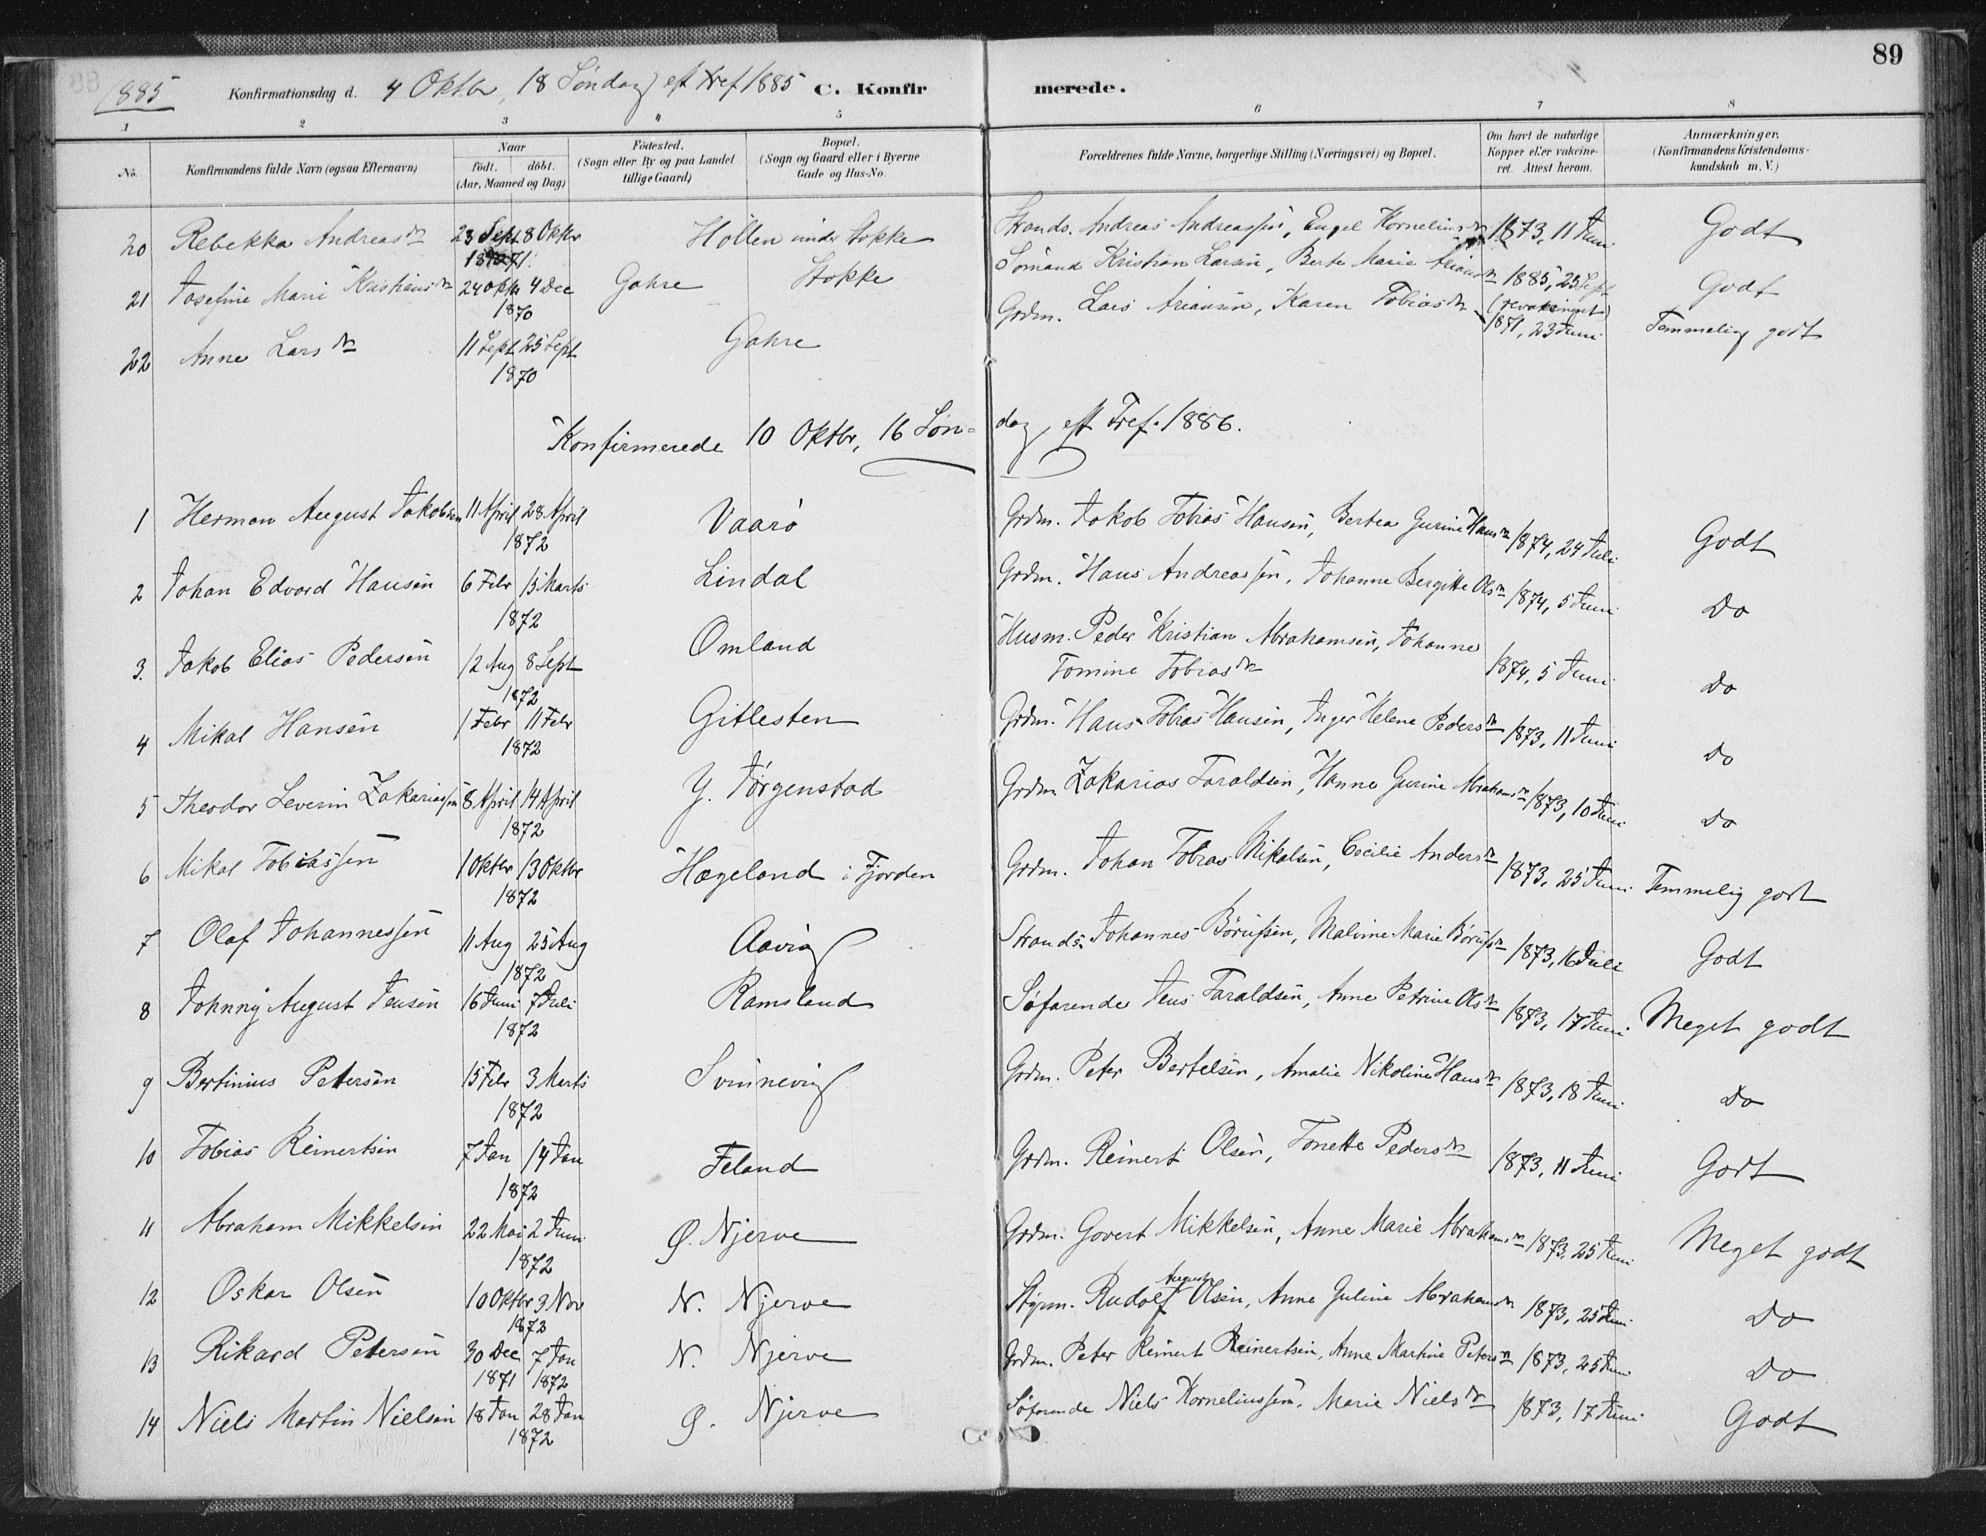 89
1885 Konfirmationsdag d. 4 Oktbr, 18 Søndag eft Tref 1885 C. Konfirmerede.
1 2 3 4 5 6 7 8
No. Konfirmandens fulde Navn (ogsaa Efternavn) Naar født. døbt. (Aar, Maaned og Dag) Födested. (Sogn eller By og paa Landet tillige Gaard) Bopæl. (Sogn og Gaard eller i Byerne Gade og Hus-No. Forældrenes fulde Navne, borgerlige Stilling (Næringsvei) og Bopæl. Om havt de naturlige Kopper eller vakcineret. Attest herom. Anmærkninger. (Konfirmandens Kristendomskundskab m. V.)
20 Rebekka Andreasdr 23 Sept 8 Oktbr 1871 Høllen under Stokke Strands. Andreas Andreassen, Engel Korneliusdr 1873, 11 Juni Godt
21 Josefine Marie Kristiansdr 24 Oktbr 4 Dec 1870 Gahre Stokke Sømand Kristian Larsen, Berte Marie 1885, 25 Sept (revakcineret) Godt
22 Anne Larsdr 11 Sept 25 Sept 1870 Gahre Grdm. Lars Ariansen, Karen Tobiasdr 1871, 23 Juni Temmelig godt
Konfirmerede 10 Oktbr, 16 Søndag eft Tref. 1886.
1 Herman August Jakobsen 11 April 28 April 1872 Vaarø Grdm. Jakob Tobias Hansen, Bertea Gurine Hansdr 1874, 24 Juli Godt
2 Johan Edvard Hansen 6 Febr 15 Marts 1872 Lindal Grdm. Hans Andreassen, Johanne Bergitte Olsdr 1874, 5 Juni Do
3. Jakob Elias Pedersen 12 Aug 8 Sept 1872 Omland Husm. Peder Kristian Abrahamsen, Johanne
Tomine Tobiasdr 1874, 5 Juni Do
4 Mikal Hansen 1 Febr 11 Febr 1872 Gitlesten Grdm. Hans Tobias Hansen, Inger Helene Pedersdr 1873, 11 Juni Do
5 Theodor Severin Zakariassen 8 April 14 April 1872 Y. Jørgenstad Grdm Zakarias Taraldsen, Hanne Gurine Abrahamsdr 1873, 10 Juni Do
6 Mikal Tobiassen 1 Oktbr 13 Oktbr 1872 Hægeland i Fjorden Grdm. Johan Tobias Mikalsen, Cecilie Andersdr 1873, 25 Juni Temmelig godt
7 Olaf Johannessen 11 Aug 25 Aug 1872 Aavig Strands. Johannes Børufsen, Malvine Marie Børufsdr 1873, 16 Juli Godt
8 Johnny August Jensen 16 Juni 7 Juli 1872 Ramsland Søfarende Jens Taraldsen, Anne Petrine Olsdr 1873, 17 Juni Meget godt
9 Bertinius Petersen 15 Febr 3 Marts 1872 Svinnevig Grdm. Peter Bertelsen, Amalie Nikoline Hansdr 1873, 18 Juni Do
10 Tobias Reinertsen 7 Jan 14 Jan 1872 Feland Grdm. Reinert Olsen, Tonette Pedersdr 1873, 11 Juni Godt
11 Abraham Mikkelsen 22 Mai 2 Juni 1872 Ø. Njerve Grdm. Govert Mikkelsen, Anne Marie Abrahamsdr 1873, 25 Juni Meget godt
12 Oskar Olsen 10 Oktbr 3 Nov 1872 N. Njerve Styrm. Rudolf August Olsen, Anne Juline Abrahamsdr 1873, 25 Juni Do
13 Rikard Petersen 30 Dec 1871 7 Jan 1872 N. Njerve Grdm. Peter Reinert Reinertsen, Anne Martine Petersdr 1873, 25 Juni Do
14 Niels Martin Nielsen 18 Jan 28 Jan 1872 Ø. Njerve Søfarende Niels Korneliussen, Marie Nielsdr 1873, 17 Juni Godt